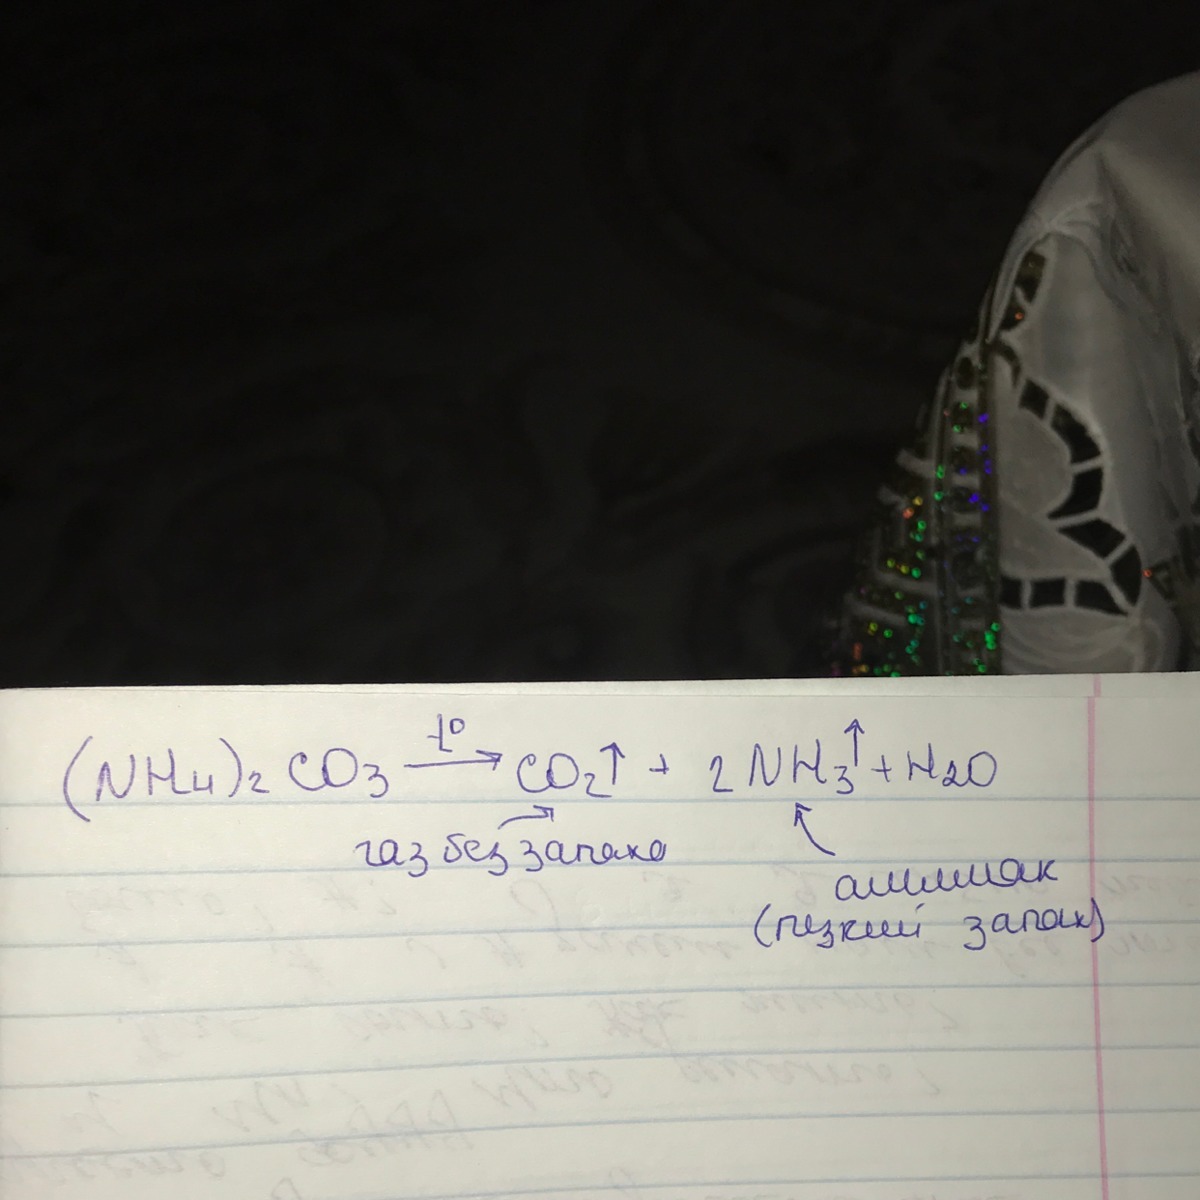 (NH4)2 CO3 t° → CO2↑ + 2NH3↑ + H2O
газ без запаха
аммиак
(резкий запах)